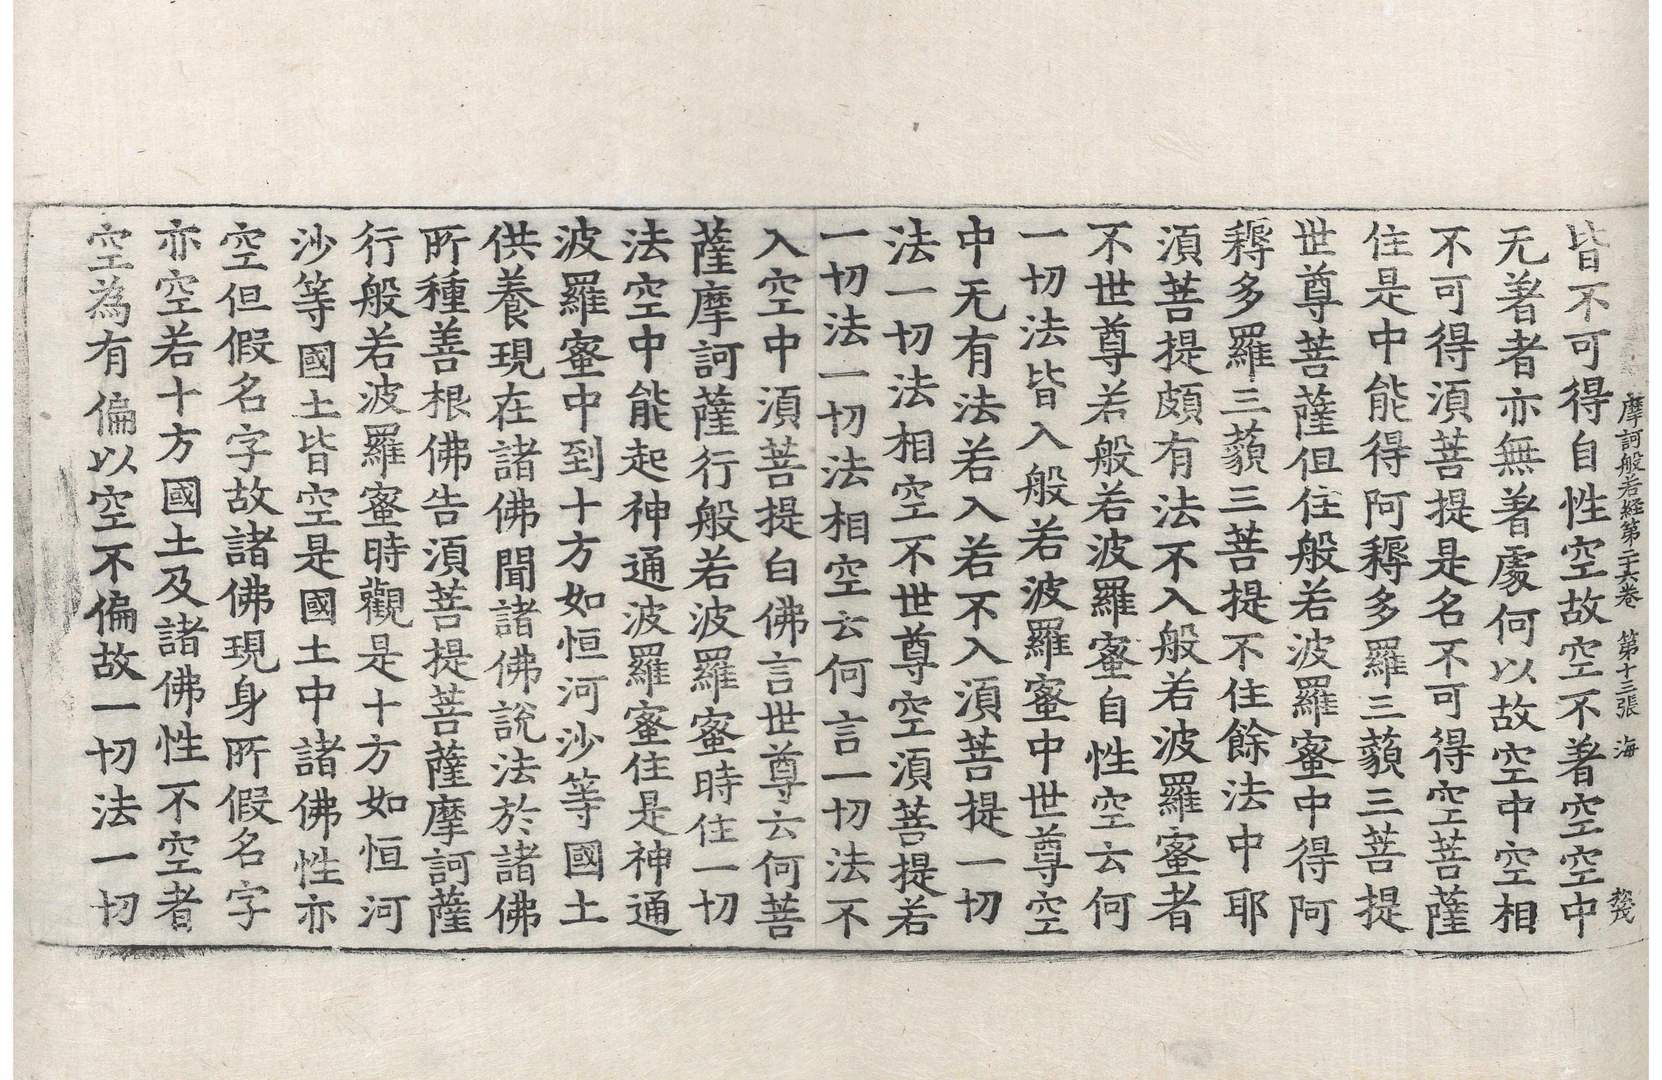 摩訶般若経第二十六卷　第十三張　海
皆不可得自性空故空不著空空中
无著者亦無著處何以故空中空相
不可得須菩提是名不可得空菩薩
住是中能得阿耨多羅三藐三菩提
世尊菩薩但住般若波羅蜜中得阿
耨多羅三藐三菩提不住餘法中耶
須菩提頗有法不入般若波羅蜜者
不世尊若般若波羅蜜自性空云何
一切法皆入般若波羅蜜中世尊空
中无有法若入若不入須菩提一切
法一切法相空不世尊空須菩提若
一切法一切法相空云何言一切法不
入空中須菩提白佛言世尊云何菩
薩摩訶薩行般若波羅蜜時住一切
法空中能起神通波羅蜜住是神通
波羅蜜中到十方如恒河沙等國土
供養現在諸佛聞諸佛說法於諸佛
所種善根佛告須菩提菩薩摩訶薩
行般若波羅蜜時觀是十方如恒河
沙等國土皆空是國土中諸佛性亦
空但假名字故諸佛現身所假名字
亦空若十方國土及諸佛性不空者
空為有偏以空不偏故一切法一切